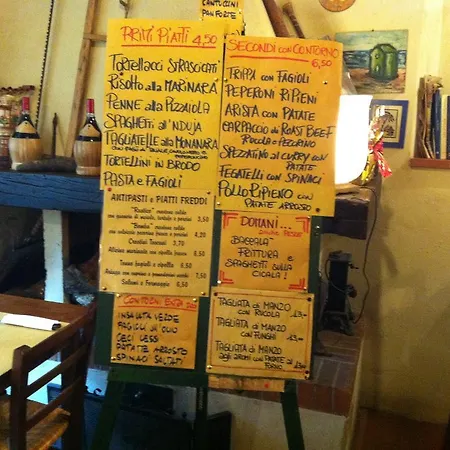 CANTUCCINI
PANFORTE
PRIMI PIATTI 4,50
TORTELLACCI STRASCICATI
RISOTTO alla MARINARA
PENNE alla PIZZAIOLA
SPAGHETTI all'NDUJA
TAGLIATELLE alla MONANARA
TORTELLINI in BRODO
PASTA e FAGIOLI
ANTIPASTI e PIATTI FREDDI
3,50
4,20
Crostini Toscani 3,50
3,50
Tonno fagioli e cipolla 5,50
Salumi e Formaggio 5,50
CONTORNI
INSALATA VERDE
FAGIOLI all'OLIO
CECI LESSI
PATATE ARROSTO
SPINACI SALTATI
SECONDI con CONTORNO
6,50
TRIPPA con FAGIOLI
PEPERONI RIPIENI
ARISTA con PATATE
CARPACCIO di ROAST BEEF
RUCOLA e PECORINO
SPEZZATINO al CURRY con
PATATE
FEGATELLI con SPINACI
POLLO RIPIENO con
PATATE ARROSTO
DOMANI...
BACCALA'
FRITTURA
e
SPAGHETTI SULLA
CICALA!
TAGLIATA di MANZO
con RUCOLA 13,00
TAGLIATA di MANZO
con FUNGHI 13,00
TAGLIATA di MANZO
agli AROMI con PATATE al
FORNO 13,00